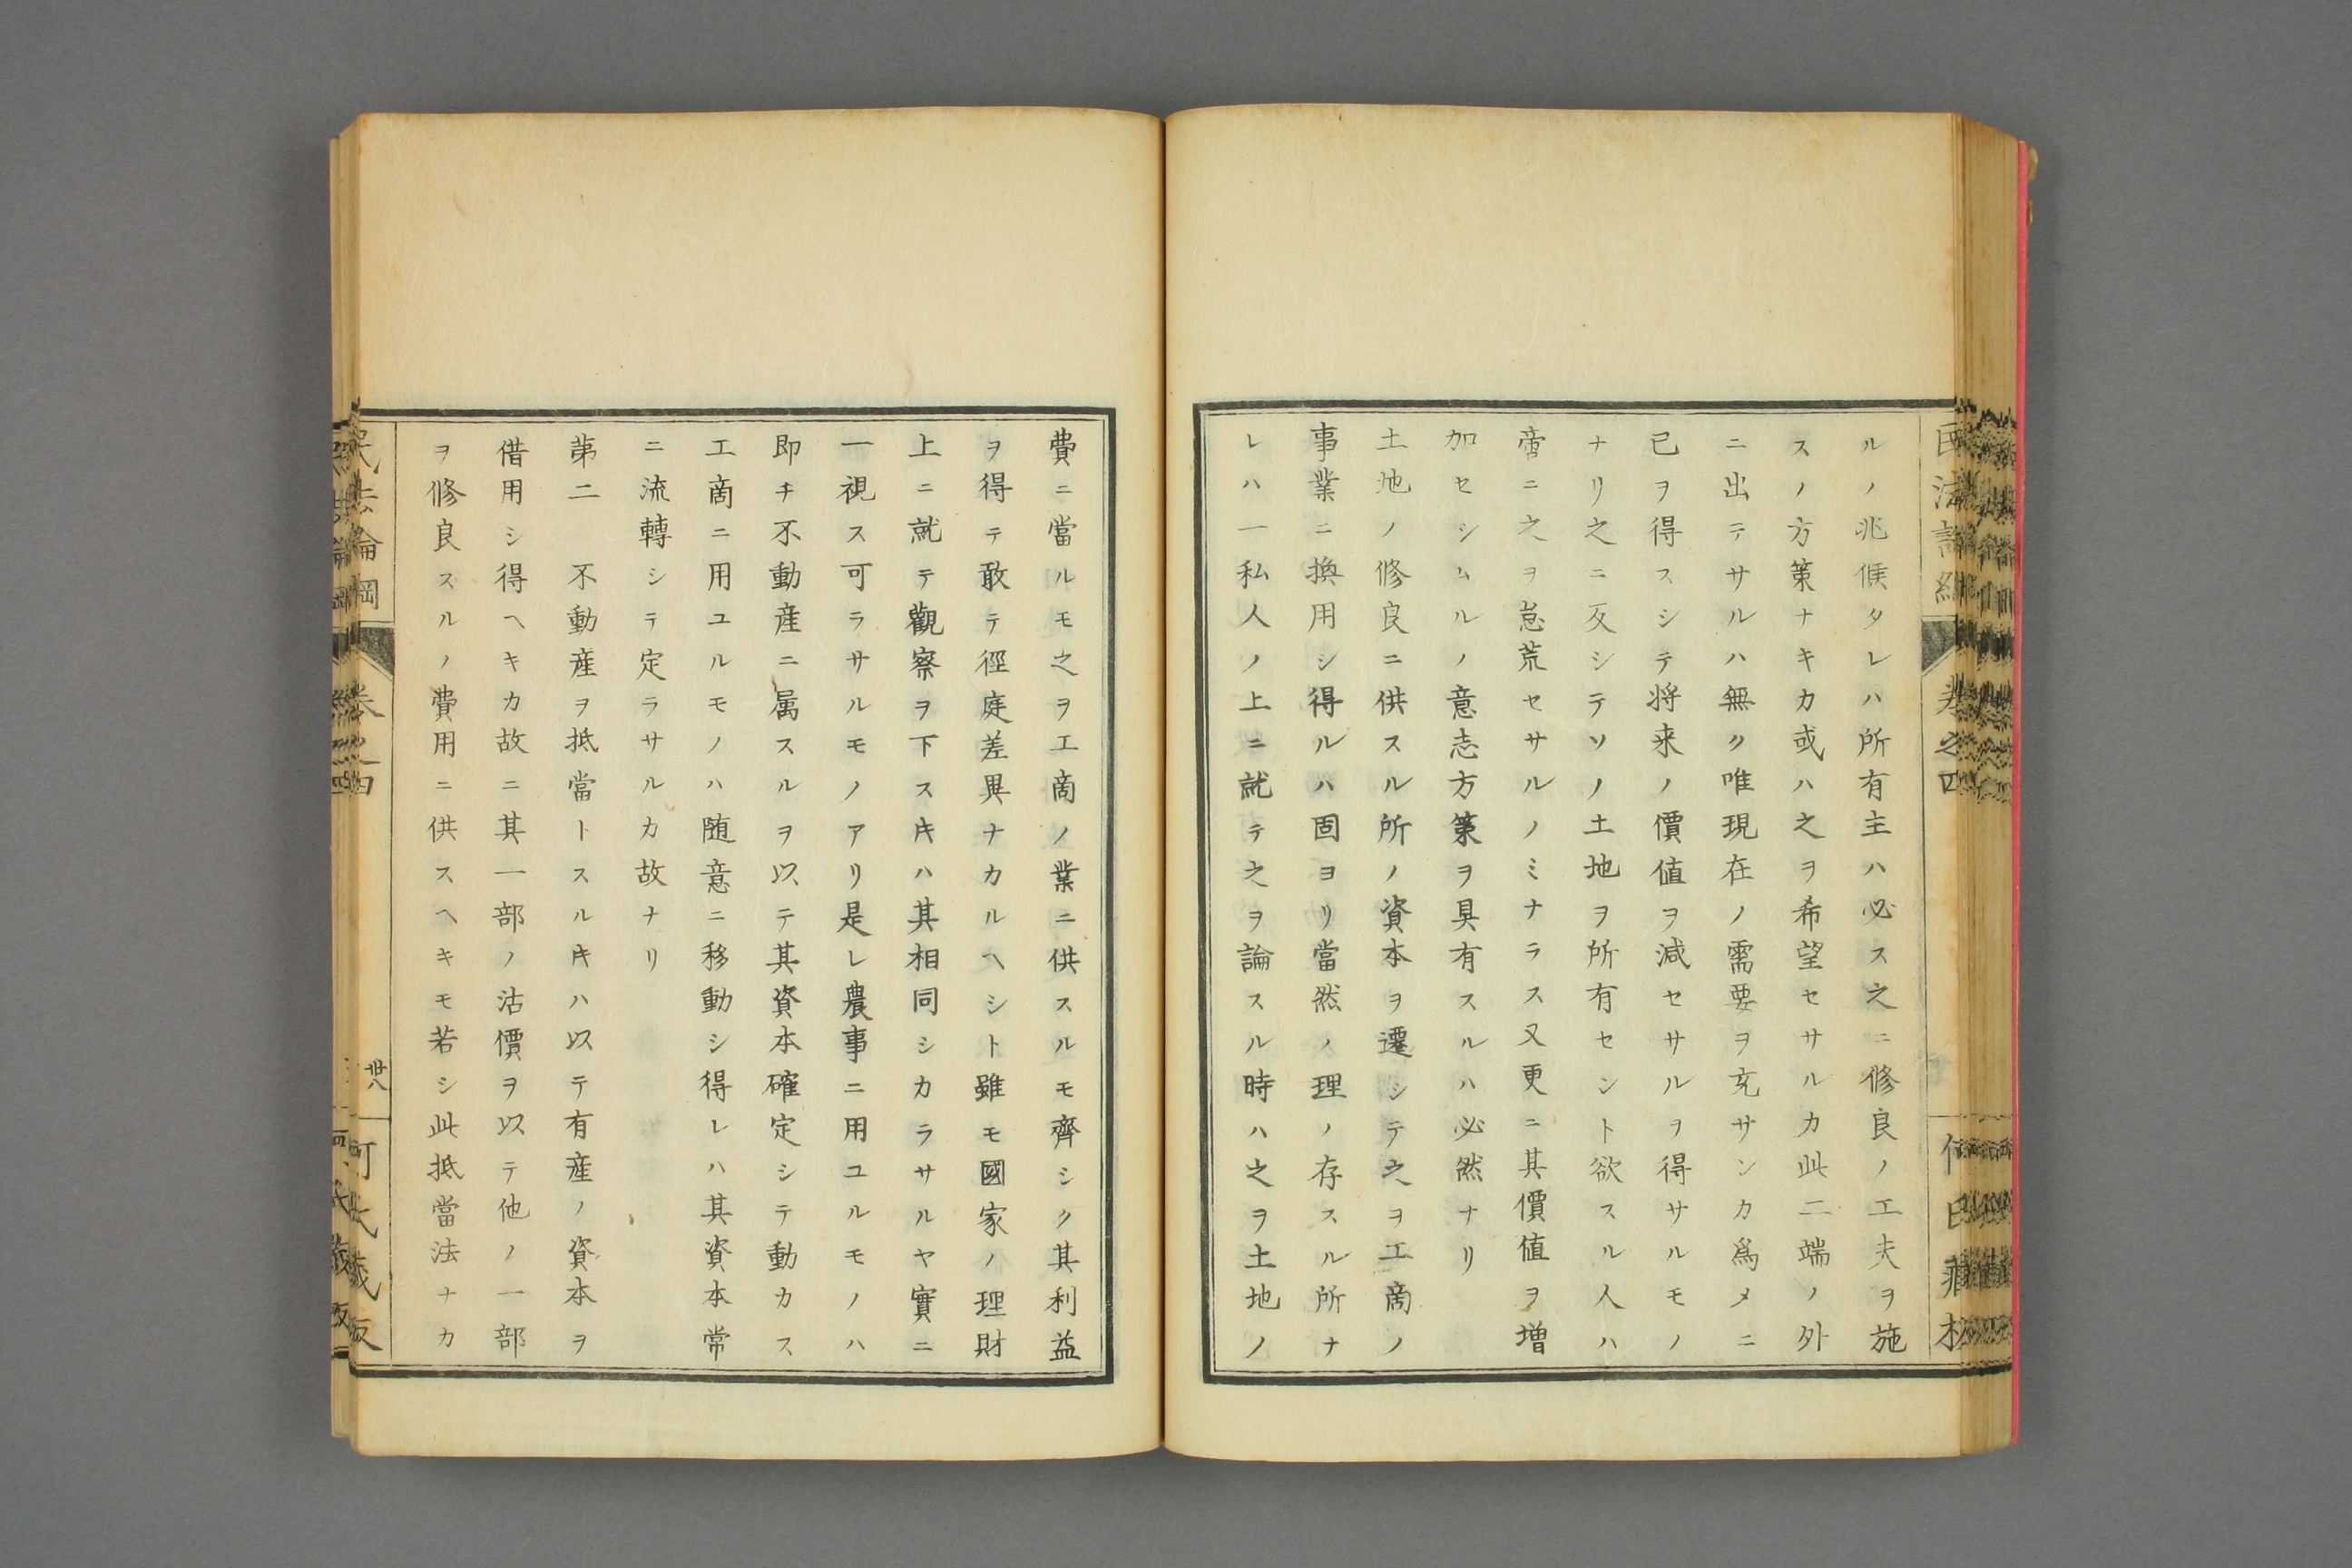 ルノ兆候タレハ所有主ハ必ス之ニ修良ノ工夫ヲ施
スノ方策ナキカ或ハ之ヲ希望セサルカ此二端ノ外
ニ出テサルハ無ク唯現在ノ需要ヲ充サンカ爲メニ
已ヲ得スシテ将来ノ價値ヲ減セサルヲ得サルモノ
ナリ之ニ反シテソノ土地ヲ所有セント欲スル人ハ
啻ニ之ヲ怠荒セサルノミナラス又更ニ其價値ヲ増
加セシムルノ意志方策ヲ具有スルハ必然ナリ
土地ノ修良ニ供スル所ノ資本ヲ遷シテ之ヲ工商ノ
事業ニ換用シ得ルハ固ヨリ當然ノ理ノ存スル所ナ
レハ一私人ノ上ニ就テ之ヲ論スル時ハ之ヲ土地ノ
費ニ當ルモ之ヲ工商ノ業ニ供スルモ齊シク其利益
ヲ得テ敢テ徑庭差異ナカルヘシト雖モ國家ノ理財
上ニ就テ觀察ヲ下スキハ其相同シカラサルヤ實ニ
一視ス可ラサルモノアリ是レ農事ニ用ユルモノハ
即チ不動産ニ属スルヲ以テ其資本確定シテ動カス
工商ニ用ユルモノハ随意ニ移動シ得レハ其資本常
ニ流轉シテ定ラサルカ故ナリ
第二 不動産ヲ抵當トスルキハ以テ有産ノ資本ヲ
借用シ得ヘキカ故ニ其一部ノ沽價ヲ以テ他ノ一部
ヲ修良スルノ費用ニ供スヘキモ若シ此抵當法ナカ
民法論綱
卷之四
丗八
何氏藏板